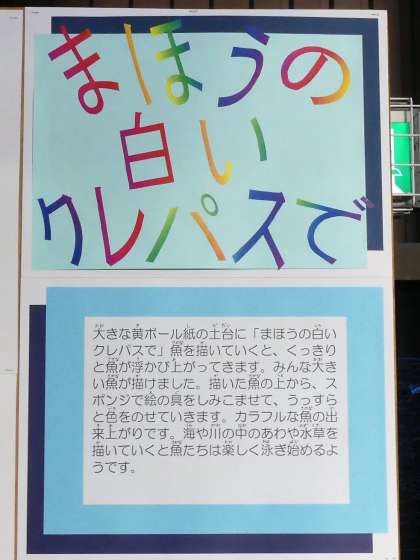 まほうの
白い
クレパスで
大きな黄ボール紙の土台に「まほうの白い
クレパスで」魚を描いていくと、くっきり
と魚が浮かび上がってきます。みんな大き
い魚が描けました。描いた魚の上から、ス
ポンジで絵の具をしみこませて、うっすら
と色をのせていきます。カラフルな魚の出
来上がりです。海や川の中のあわや水草を
描いていくと魚たちは楽しく泳ぎ始めるよ
うです。